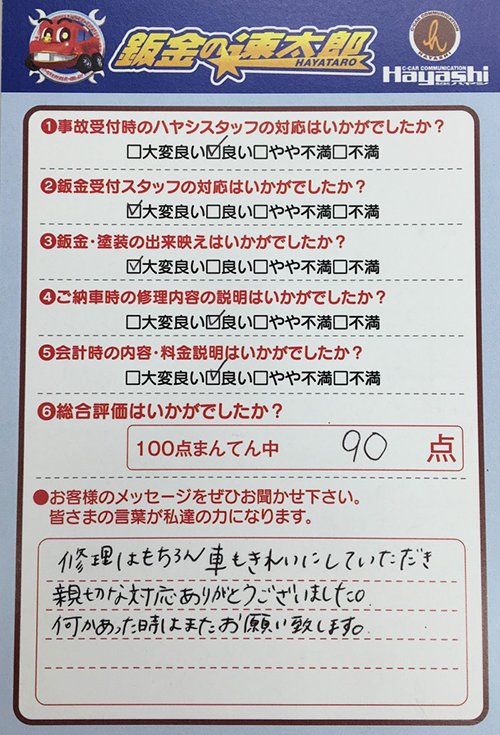 鈑金の速太郎
HAYATARO
C-CAR COMMUNICATION
HAYASHI
C-CAR COMMUNICATION
Hayashi
❶事故受付時のハヤシスタッフの対応はいかがでしたか？
☐大変良い☑良い☐やや不満☐不満
❷鈑金受付スタッフの対応はいかがでしたか？
☑大変良い☐良い☐やや不満☐不満
❸鈑金・塗装の出来映えはいかがでしたか？
☑大変良い☐良い☐やや不満☐不満
❹ご納車時の修理内容の説明はいかがでしたか？
☐大変良い☑良い☐やや不満☐不満
❺会計時の内容・料金説明はいかがでしたか？
☐大変良い☑良い☐やや不満☐不満
❻総合評価はいかがでしたか？
100点まんてん中 90 点
●お客様のメッセージをぜひお聞かせ下さい。
皆さまの言葉が私達の力になります。
修理はもちろん車もきれいにしていただき
親切な対応ありがとうございました。
何かあった時はまたお願い致します。